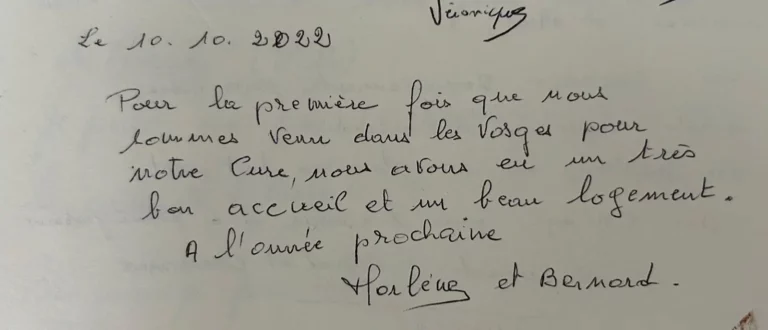 Véronique
Le 10. 10. 2022
Pour la première fois que nous
sommes venu dans les Vosges pour
notre Cure, nous avons eu un très
bon accueil et un beau logement.
A l'année prochaine
Marlène et Bernard.